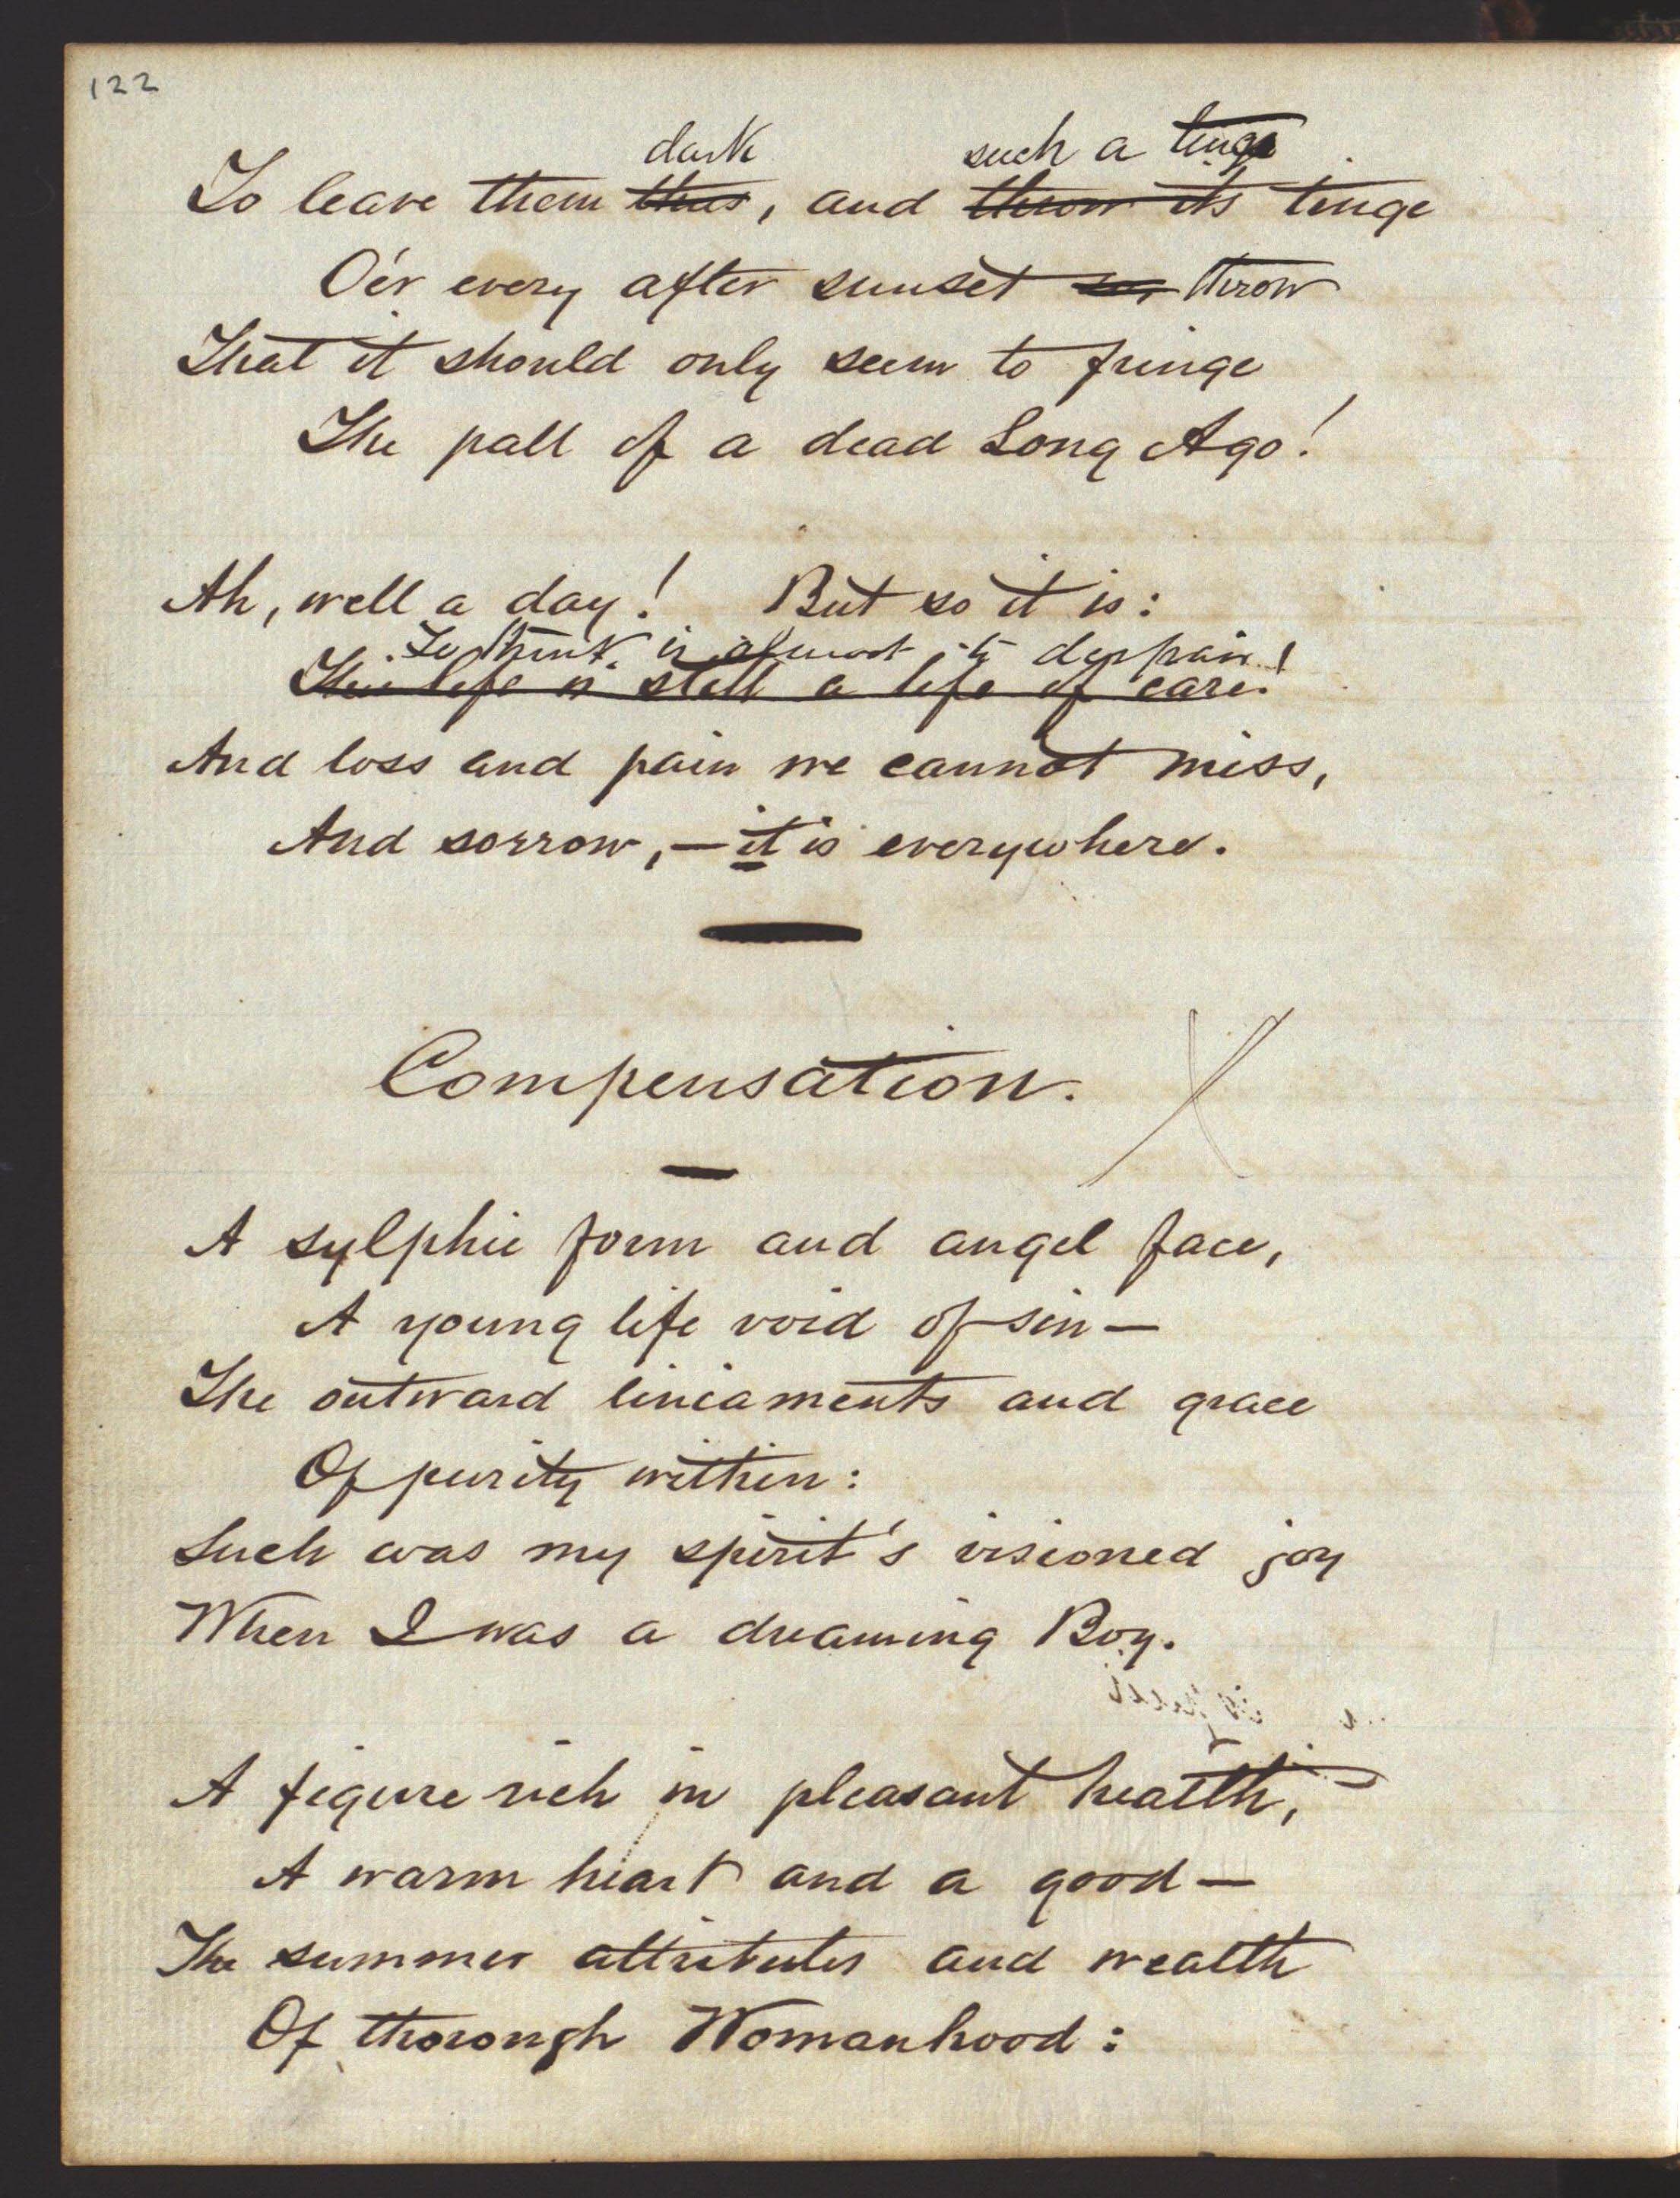 122
dark such a tinge
To leave them thus, and throw its tinge
O'er every after sunset so, throw
That it should only seem to fringe
The pall of a dead Long Ago!
Ah, well a day! But so it is:
To think is almost to despair!
This life is still a life of care!
And loss and pain we cannot miss,
And sorrow,—it is everywhere.
Compensation. X
A sylphic form and angel face,
A young life void of sin—
The outward lineaments and grace
Of purity within:
Such was my spirit's visioned joy
When I was a dreaming Boy.
A figure rich in pleasant health,
A warm heart and a good—
The summer attributes and wealth
Of thorough Womanhood: